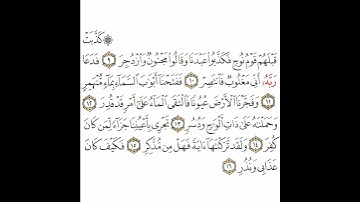 ۞ كَذَّبَتۡ
قَبۡلَهُمۡ قَوۡمُ نُوحٖ فَكَذَّبُواْ عَبۡدَنَا وَقَالُواْ مَجۡنُونٞ وَٱزۡدُجِرَ ٩ فَدَعَا
رَبَّهُۥٓ أَنِّي مَغۡلُوبٞ فَٱنتَصِرۡ ١٠ فَفَتَحۡنَآ أَبۡوَٰبَ ٱلسَّمَآءِ بِمَآءٖ مُّنۡهَمِرٖ
١١ وَفَجَّرۡنَا ٱلۡأَرۡضَ عُيُونٗا فَٱلۡتَقَى ٱلۡمَآءُ عَلَىٰٓ أَمۡرٖ قَدۡ قُدِرَ ١٢
وَحَمَلۡنَٰهُ عَلَىٰ ذَاتِ أَلۡوَٰحٖ وَدُسُرٖ ١٣ تَجۡرِي بِأَعۡيُنِنَا جَزَآءٗ لِّمَن كَانَ
كُفِرَ ١٤ وَلَقَد تَّرَكۡنَٰهَآ ءَايَةٗ فَهَلۡ مِن مُّدَّكِرٖ ١٥ فَكَيۡفَ كَانَ
عَذَابِي وَنُذُرِ ١٦